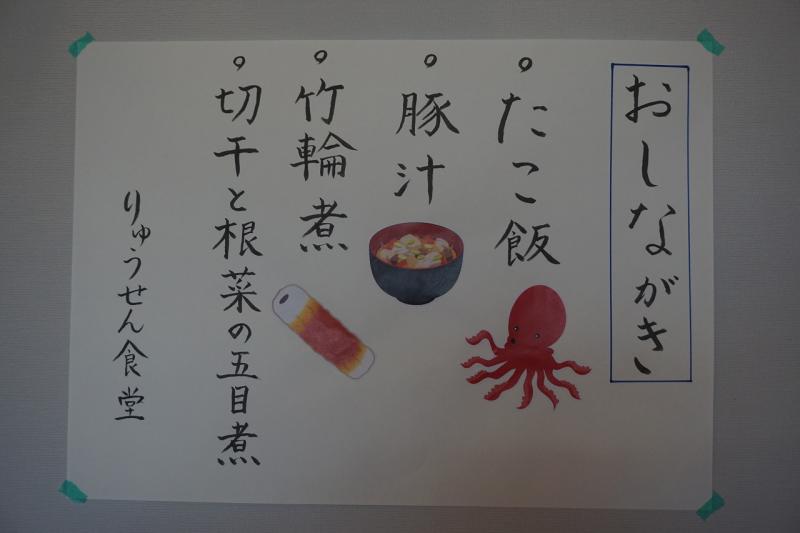 おしながき
。たこ飯
。豚汁
。竹輪煮
。切干と根菜の五目煮
りゅうせん食堂